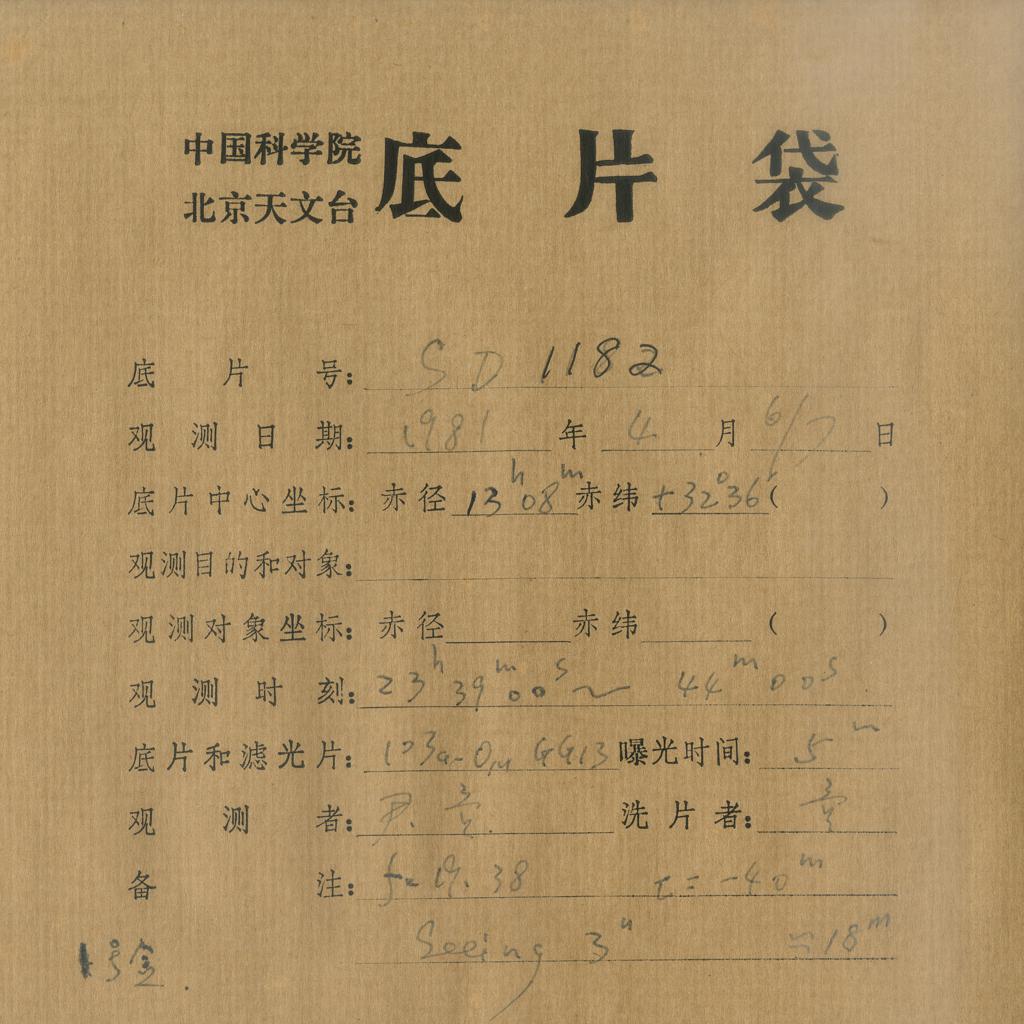 中国科学院
北京天文台
底片袋
底片号: SD 1182
观测日期: 1981 年 4 月 6/7 日
底片中心坐标: 赤径 13h08m 赤纬 +32°36′ ( )
观测目的和对象:
观测对象坐标: 赤径 赤纬 ( )
观测时刻: 23h39m00s ~ 44m00s
底片和滤光片: 103a-O, GG13 曝光时间: 5m
观测者: 洗片者:
备注: f= 19.38 t= -40m
Seeing 3" ≈18m
1号